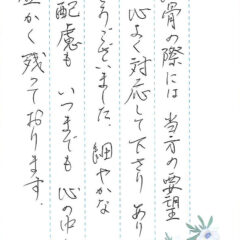 骨の際には 当方の要望
心よく対応して下さり あり
うございました。細やかな
配慮も いつまでも 心の中
かく残っております。